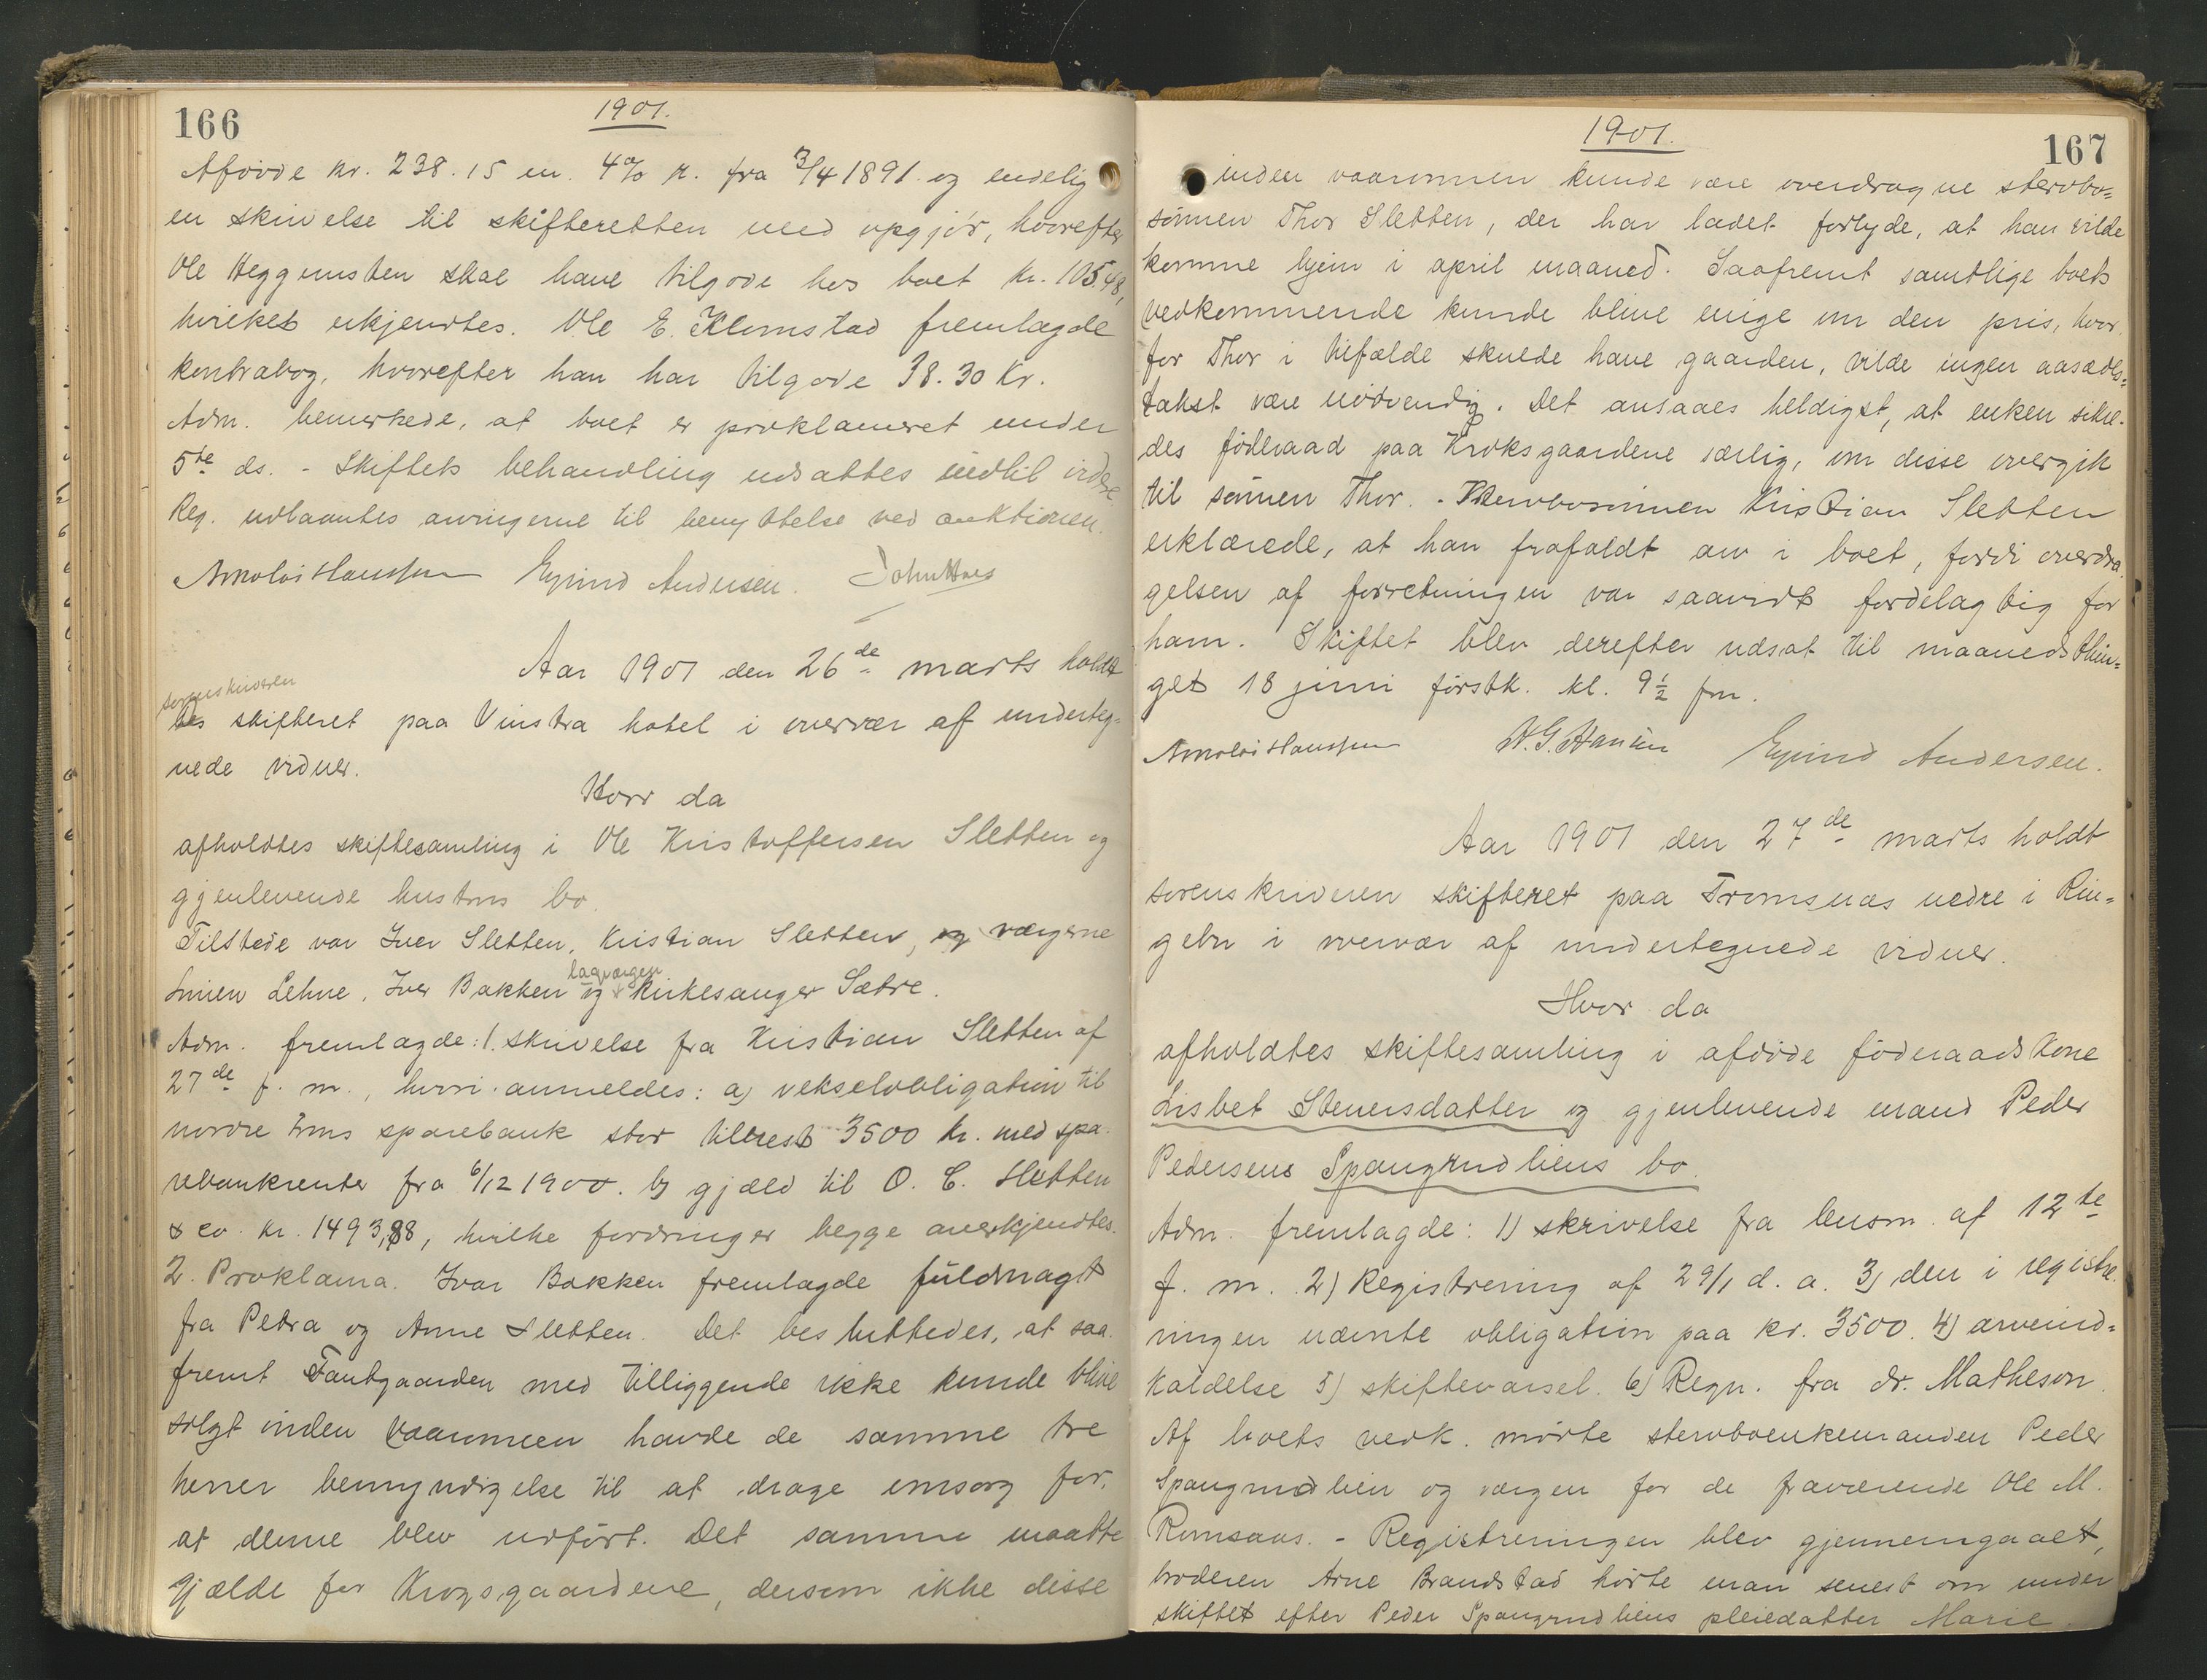 166
1901.
Afdöde kr. 238.15 m. 4% r. fra 3/4 1891 og endelig
en skrivelse til skifteretten med opgjör, hvorefter
Ole Heggensten skal have tilgode hos boet kr. 105.48,
hvilket erkjendtes. Ole E. Klomstad fremlagde
kontrabog, hvorefter han har tilgode 38.30 Kr.
Adm. bemerkede, at boet er proklameret under
5te ds. - Skiftets behandling udsattes indtil videre
Reg. udlaantes arvingerne til benyttelse ved auktionen.
Arnoldi Hanssen Eyvind Andersen. John Haas
Aar 1901 den 26de marts holdt
sorenskriveren
skifteret paa Vinstra hotel i overvær af underteg=
nede vidner.
Hvor da
afholdtes skiftesamling i Ole Kristoffersen Sletten og
gjenlevende hustrus bo.
Tilstede var Iver Sletten, Kristian Sletten, værgerne
Simen Lehne, Iver Bakken og lagværgen kirkesanger Sætre.
Adm. fremlagde: 1. skrivelse fra Kristian Sletten af
27de f. m., hvori anmeldes: a) vekselobligation til
nordre Frons sparebank stor tilrest 3500 kr. med spa-
rebankrenter fra 6/12 1900. b) gjæld til O. C. Sletten
& co. kr. 1493,88, hvilke fordringer begge anerkjendtes.
2. Proklama. Ivar Bakken fremlagde fuldmagt
fra Petra og Anne Sletten. Det besluttedes, at saa-
fremt Fautgaarden med tilliggende ikke kunde blive
solgt inden vaaronnen havde de samme tre
herrer bemyndigelse til at drage omsorg for,
at denne blev udført. Det samme maatte
gjælde for Krogsgaardene, dersom ikke disse
1901.
167
inden vaaronnen kunde være overdragne stervbo=
sönnen Thor Sletten, der har ladet forlyde, at han vilde
komme hjem i april maaned. Saafremt samtlige boets
vedkommende kunde blive enige om den pris, hvor-
for Thor i tilfælde skulde have gaarden, vilde ingen aasædes=
takst være nödvendig. Det ansaaes heldigst, at enken sikre-
des föderaad paa Kroksgaardene særlig, om disse overgik
til sönnen Thor. - Stervbosönnen Kristian Sletten
erklærede, at han frafaldt arv i boet, fordi overdra-
gelsen af forretningen var saavidt fordelagtig for
ham. Skiftet blev derefter udsat til maanedsthin=
get 18 juni förstk. kl. 9½ fm.
Arnoldi Hanssen H. G. Hansen Eyvind Andersen.
Aar 1901 den 27de marts holdt
sorenskriveren skifteret paa Tromsnæs nedre i Rin=
gebu i overvær af undertegnede vidner.
Hvor da
afholdtes skiftesamling i afdöde föderaadskone
Lisbet Stenersdatter og gjenlevende mand Peder
Pedersens Spangrudliens bo.
Adm. fremlagde: 1) skrivelse fra lensm. af 12te
f. m. 2) Registrering af 29/1 d. a. 3) den i registre-
ringen nævnte obligation paa kr. 3500. 4) arveind=
kaldelse 5) skiftevarsel. 6) Regn. fra dr. Matheson.
Af boets vedk. mödte stervboenkemanden Peder
Spangrudlien og værgen for de fraværende Ole M.
Romsaas. - Registreringen blev gjennemgaaet,
broderen Arne Brandstad hörte man senest om under
skiftet efter Peder Spangrudliens pleiedatter Marie